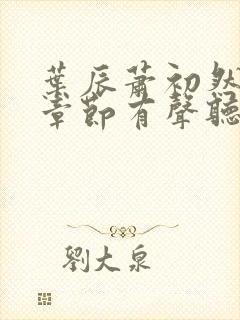 葉辰蕭初然
章節有聲聽
劉大泉